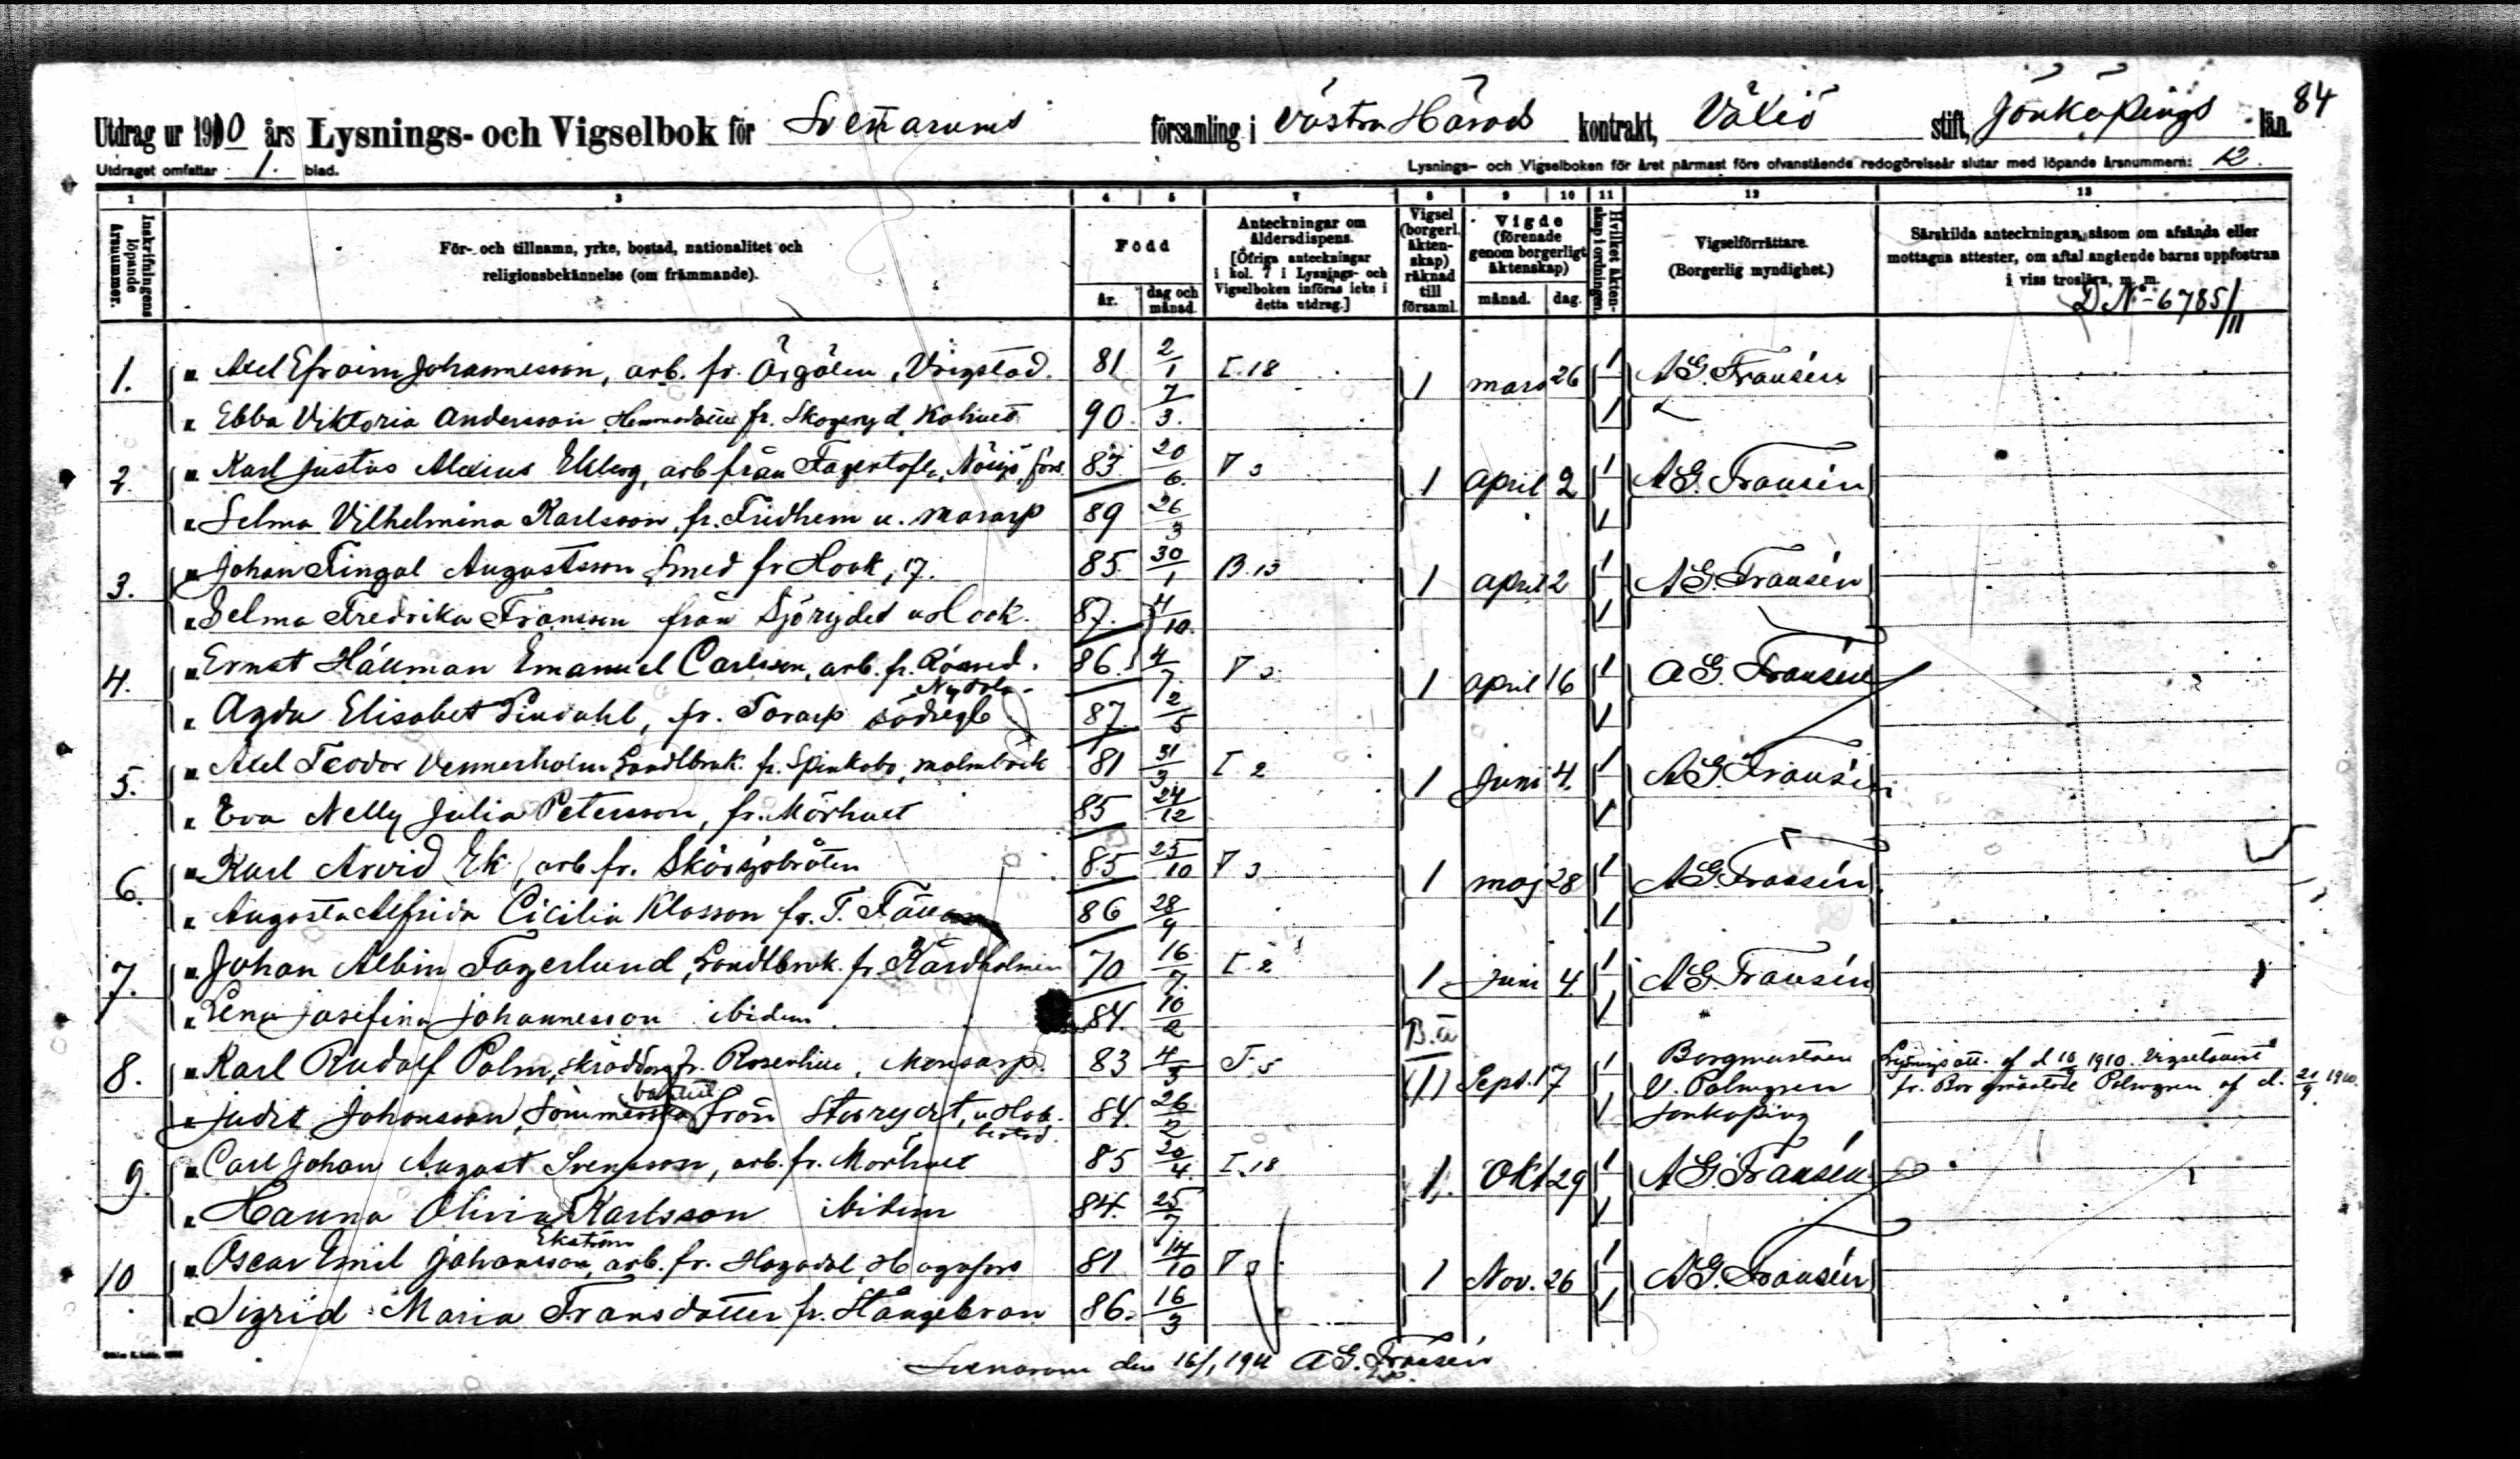 84
Utdrag ur 1910 års Lysnings- och Vigselbok för Svenarums församling i Västra Härads kontrakt, Växiö stift, Jönköpings län.
Utdraget omfattar 1. blad.
Lysnings- och Vigselboken för året närmast före ofvanstående redogörelseår slutar med löpande årsnummern: 12.
1 3 4 5 7 8 9 10 11 12 13
Inskrifningens löpande årsnummer.
För- och tillnamn, yrke, bostad, nationalitet och religionsbekännelse (om främmande).
Född
år. dag och månad.
Anteckningar om åldersdispens. [Öfriga anteckningar i kol. 7 i Lysnings- och Vigselboken införas icke i detta utdrag.]
Vigsel (borgerl. äktenskap) räknad till församl.
Vigde (förenade genom borgerligt äktenskap)
månad. dag.
Hvilket äktenskap i ordningen.
Vigselförrättare. (Borgerlig myndighet.)
Särskilda anteckningar, såsom om afsända eller mottagna attester, om aftal angående barns uppfostran i viss troslära, m. m.
D No 6785/11
1. Axel Efraim Johannesson, arb. fr. Örgölen, Vrigstad. 81 2/1 I.18 1 mars 26 1 A G. Fransén
Ebba Viktoria Andersson fr. Skogeryd 90. 7/3. 1
2. Karl Justus Alexius Ekberg, arb från Fagertofta, Näsjö förs. 83 20/6 V 3 1 april 2 1 A G. Fransén
Selma Vilhelmina Karlsson, fr. Fridhem u. 89 26/3 1
3. Johan Fingal Augustsson Smed fr Hook, 85 30/1 B.13 1 april 2 1 A G. Fransén
Selma Fredrika Fransson från Sjörydet u Hook. 87. 4/10. 1
4. Ernst Hallman Emanuel Carlsson, arb. fr. 86. 4/7 V 3 1 april 16 1 A G. Fransén
Nydala
Agda Elisabet Lindahl, fr. Torarp 87. 12/5 1
5. Axel Teodor Vennerholm Landtbruk. fr. Spinkabo, Malmbäck 81 31/3 I 2 1 Juni 4. 1 A G. Fransén
Eva Nelly Julia Petersson, fr. Mörhult 85 24/12 1
6. Karl Arvid Ek, arb fr. Skärsjobråten 85 25/10 V 3 1 maj 28 1 A G. Fransén
Augusta Alfrida Cicilia Klasson fr. 86 28/9 1
7. Johan Albin Fagerlund, Landtbruk. fr. Kärdholmen 70 16/7 I 2 1 juni 4. 1 A G. Fransén
Lena Josefina Johannesson ibidem. 84. 10/2 1
8. Karl Rudolf Palm, skräddare fr. Rosenhill, Månsarp. 83 4/3 F 5 (1) Sept. 17 1 Borgmästare V. Palmgren Jönköping
Lysnings att. af d 10/9 1910. Vigselattest fr. Borgmästare Palmgren af d. 21/9 1910.
Judit Johansson, Sömmerska från Starrydet, u Hok. 84. 26/2 1
9. Carl Johan August Svensson, arb. fr. Mörhult 85 20/4 I.18 1. Okt 29 1 A G. Fransén
Hanna Olivia Karlsson ibidem 84. 25/7 1
Ekström
10 Oscar Emil Johansson, arb. fr. Hagadal, Hagafors 81 14/10 V 1 Nov. 26 1 A G. Fransén
Sigrid Maria Fransdotter fr. Hängebron 86. 16/3 1
Svenarum den 16/1 1911 A G. Fransén